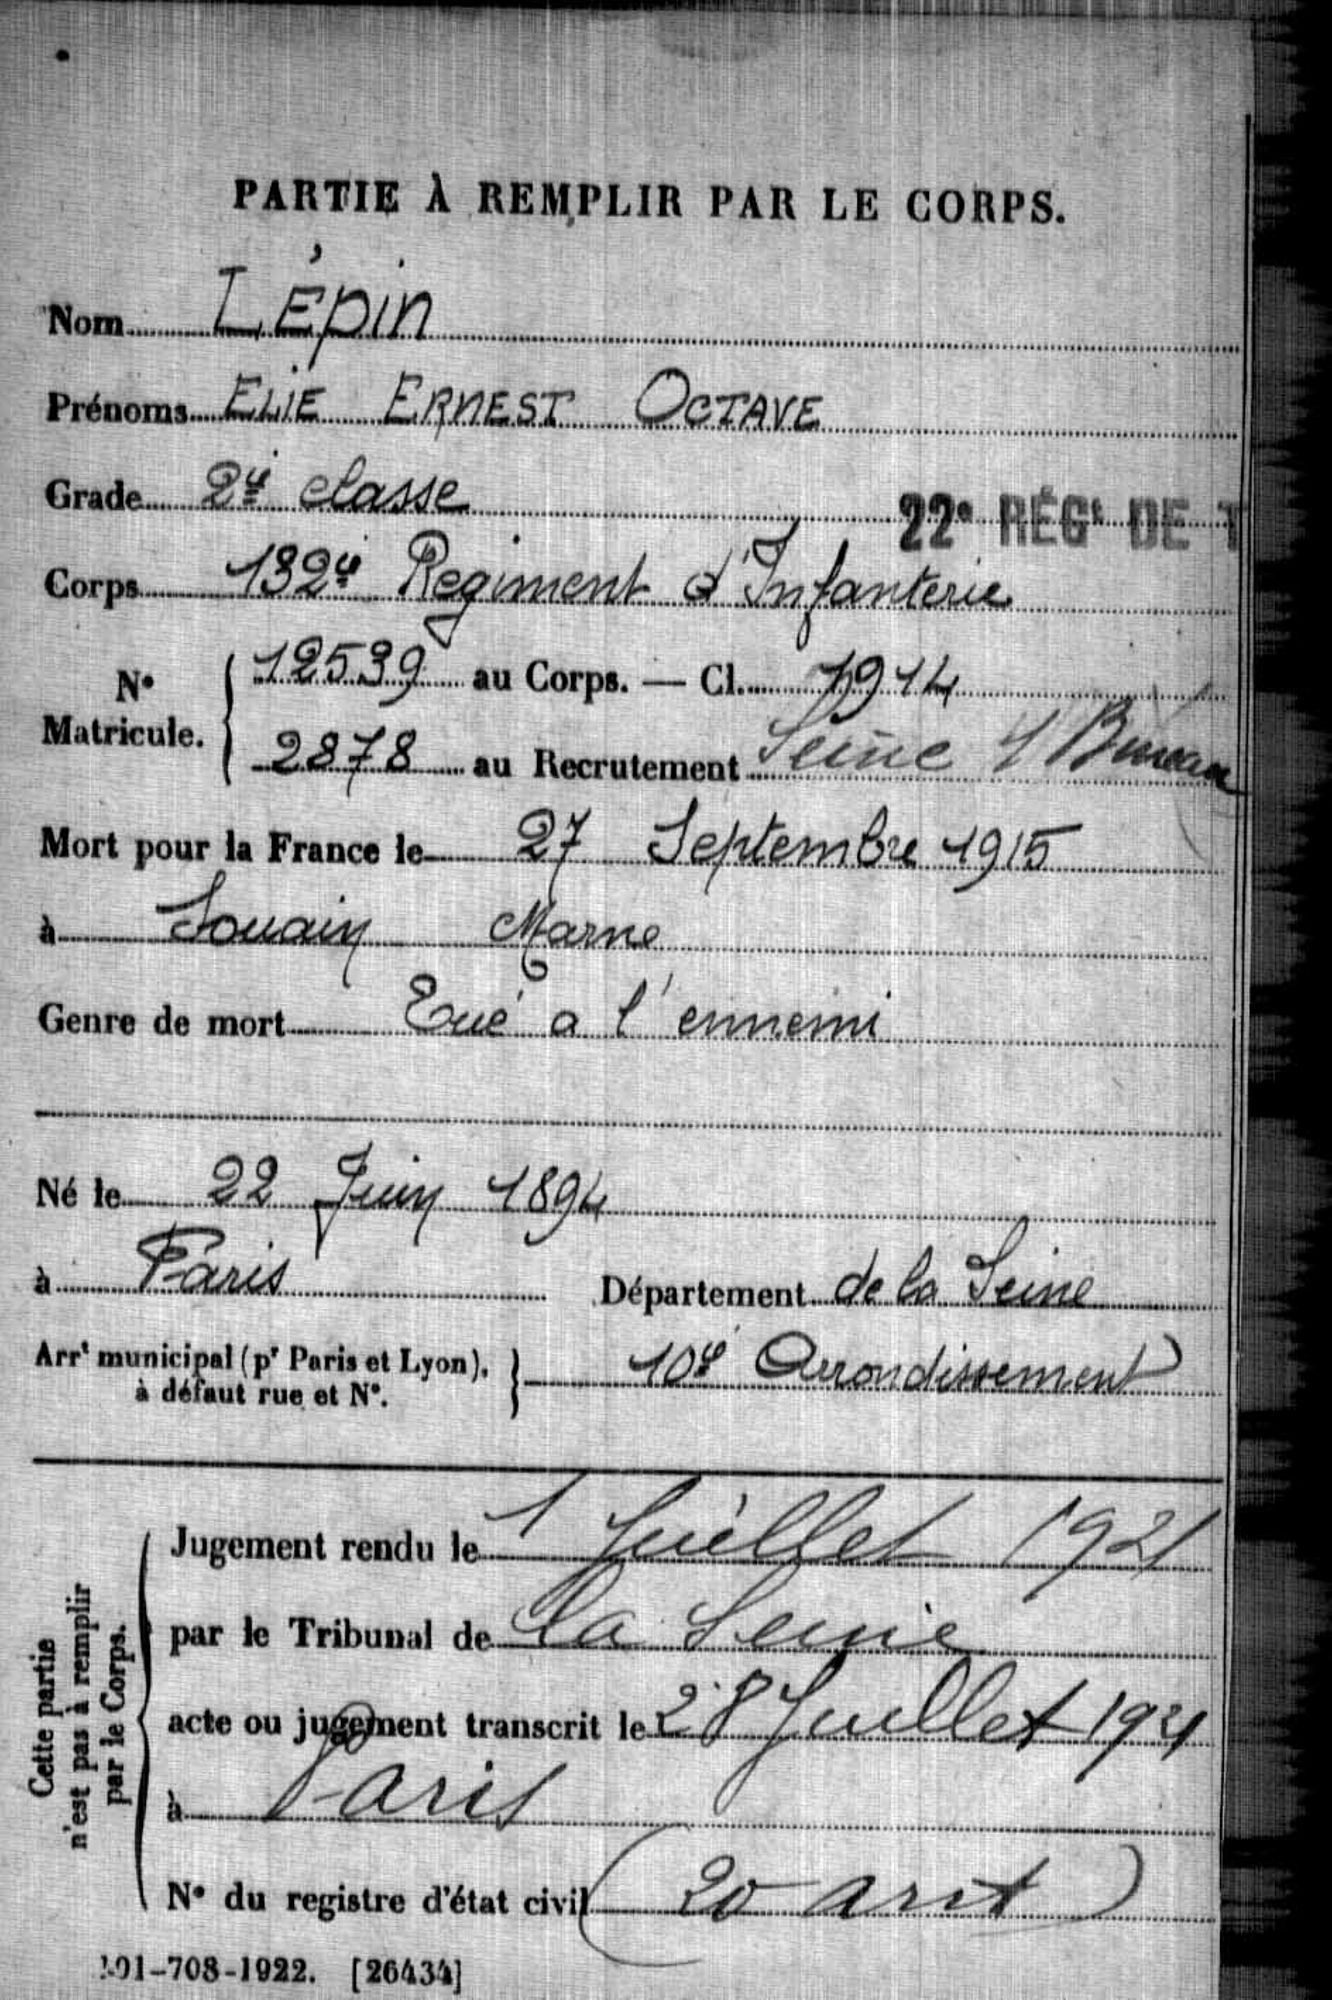 PARTIE À REMPLIR PAR LE CORPS.
Nom LÉpin
Prénoms ELIE ERNEST OCTAVE
Grade 2e classe
22e RÉGt DE T
Corps 132e Regiment d'Infanterie
No Matricule. { 12539 au Corps. — Cl. 1914
2878 au Recrutement Seine 4 Bureau
Mort pour la France le 27 Septembre 1915
à Souain Marne
Genre de mort Tué a l'ennemi
Né le 22 Juin 1894
à Paris Département de la Seine
Arrt municipal (pr Paris et Lyon), } 10e Arrondissement
à défaut rue et No.
Cette partie n'est pas à remplir par le Corps.
Jugement rendu le 1 Juillet 1921
par le Tribunal de la Seine
acte ou jugement transcrit le 28 Juillet 1921
à Paris
No du registre d'état civil (20 arrt)
101-708-1922. [26434]